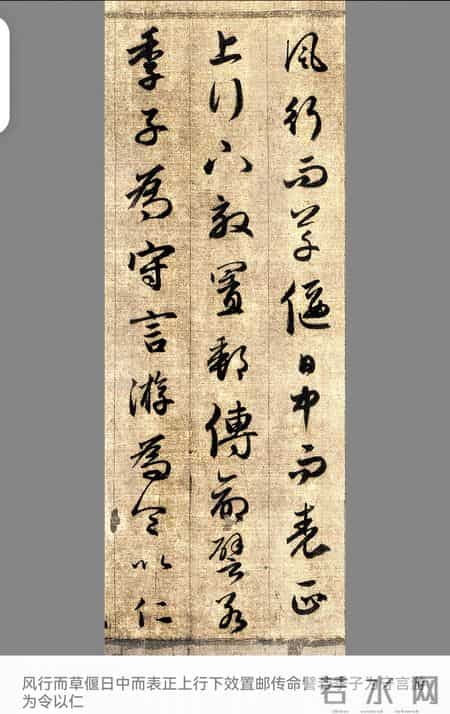 風行而草偃日中而表正
上行下效置郵傳命譬若
季子為守言游為令以仁
风行而草偃日中而表正上行下效置邮传命譬若季子为守言游
为令以仁
若水网